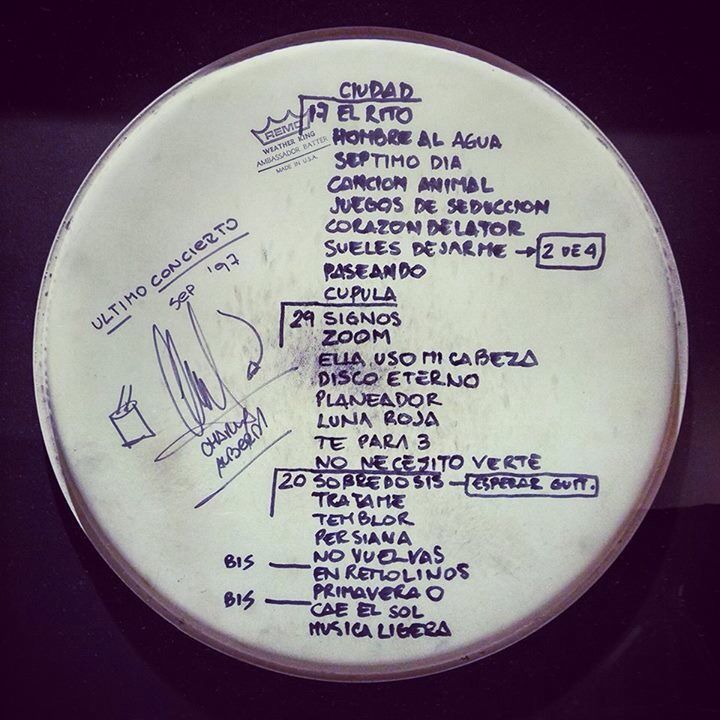 CIUDAD
17 EL RITO
HOMBRE AL AGUA
SEPTIMO DIA
CANCION ANIMAL
JUEGOS DE SEDUCCION
CORAZON DELATOR
SUELES DEJARME → 2 DE 4
PASEANDO
CUPULA
29 SIGNOS
ZOOM
ELLA USO MI CABEZA
DISCO ETERNO
PLANEADOR
LUNA ROJA
TE PARA 3
NO NECESITO VERTE
20 SOBREDOSIS — ESPERAR GUIT.
TRATAME
TEMBLOR
PERSIANA
NO VUELVAS
BIS — EN REMOLINOS
PRIMAVERA 0
BIS — CAE EL SOL
MUSICA LIGERA
REMO
WEATHER KING
AMBASSADOR BATTER
MADE IN U.S.A.
ULTIMO CONCIERTO
SEP '97
CHARLY
ALBERTI